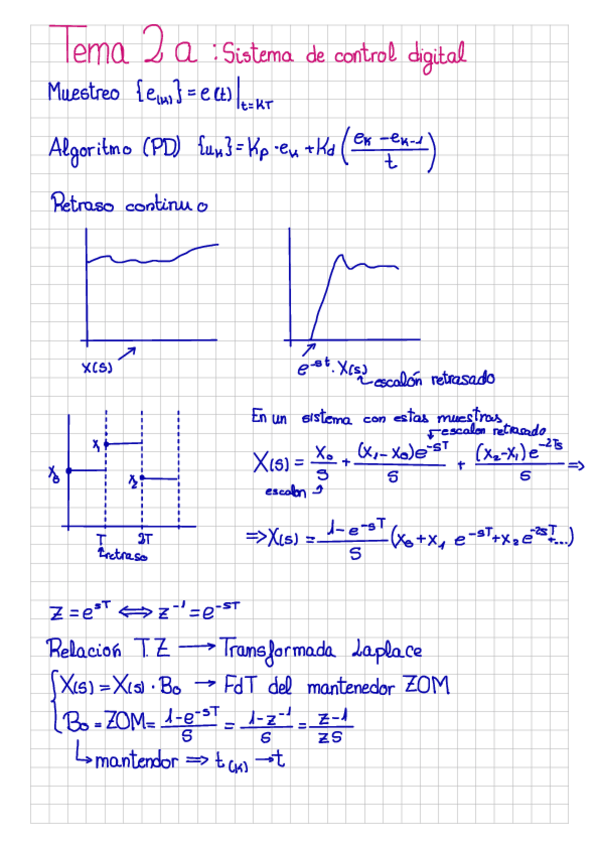 Tema 2a : Sistema de control digital
Muestreo {e(k)} = e(t)|t=KT
Algoritmo (PD) {uk} = Kp · ek + Kd ((ek - ek-1)/t)
Retraso continuo
X(s)
e^-st · X(s)
escalón retrasado
En un sistema con estas muestras
escalon retrasado
X(s) = x0/s + (x1 - x0)e^-sT/s + (x2 - x1)e^-2Ts/s ⇒
escalon
x1
x0
x2
T 2T
retraso
⇒ X(s) = (1 - e^-sT)/s (x0 + x1 e^-sT + x2 e^-2sT + ...)
z = e^sT ⇔ z^-1 = e^-sT
Relación T.Z → Transformada Laplace
X(s) = X(s) · B0 → FdT del mantenedor ZOM
B0 = ZOM = (1 - e^-sT)/s = (1 - z^-1)/s = (z - 1)/zs
mantendor ⇒ t(k) → t